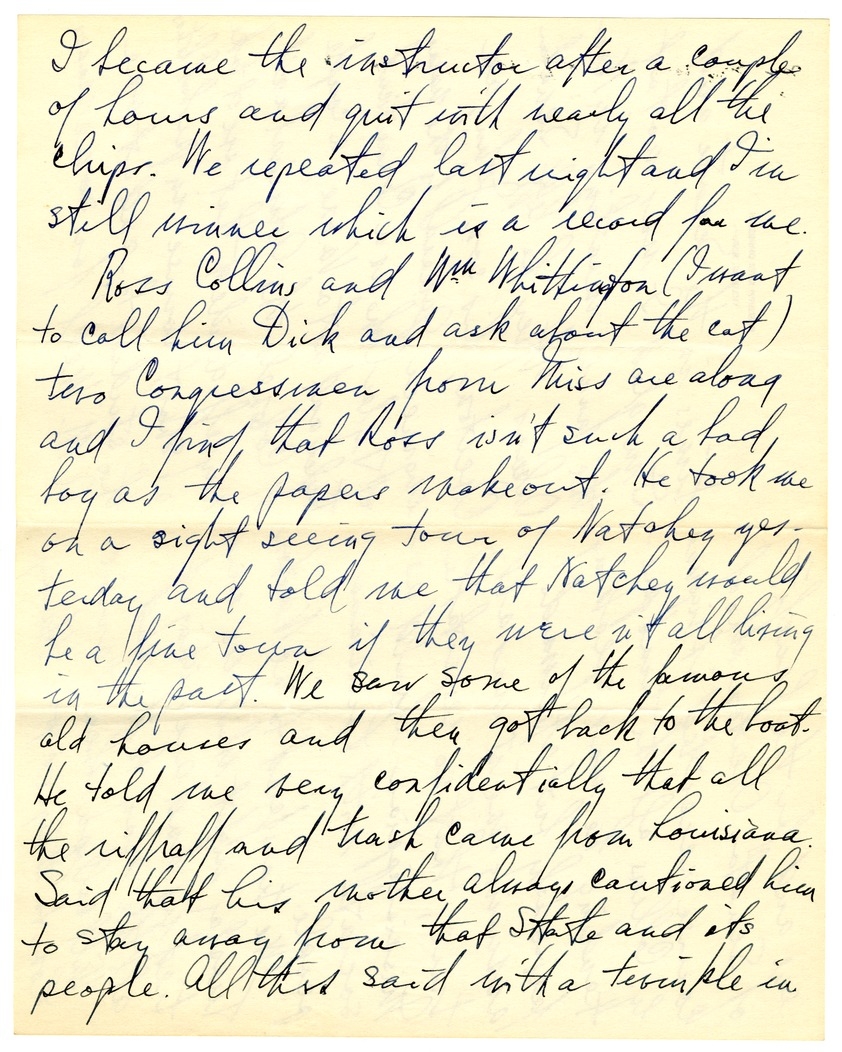 I became the instructor after a couple
of hours and quit with nearly all the
chips. We repeated last night and I'm
still winner which is a record for me.
Ross Collins and Wm Whittington (I want
to call him Dick and ask about the cat)
two Congressmen from Miss are along
and I find that Ross isn't such a bad
boy as the papers make out. He took me
on a sight seeing tour of Natchey yes-
terday and told me that Natchey would
be a fine town if they were n't all living
in the past. We saw some of the famous
old houses and then got back to the boat.
He told me very confidentially that all
the riffraff and trash came from Louisiana.
Said that his mother always cautioned him
to stay away from that State and its
people. All this said with a twinkle in